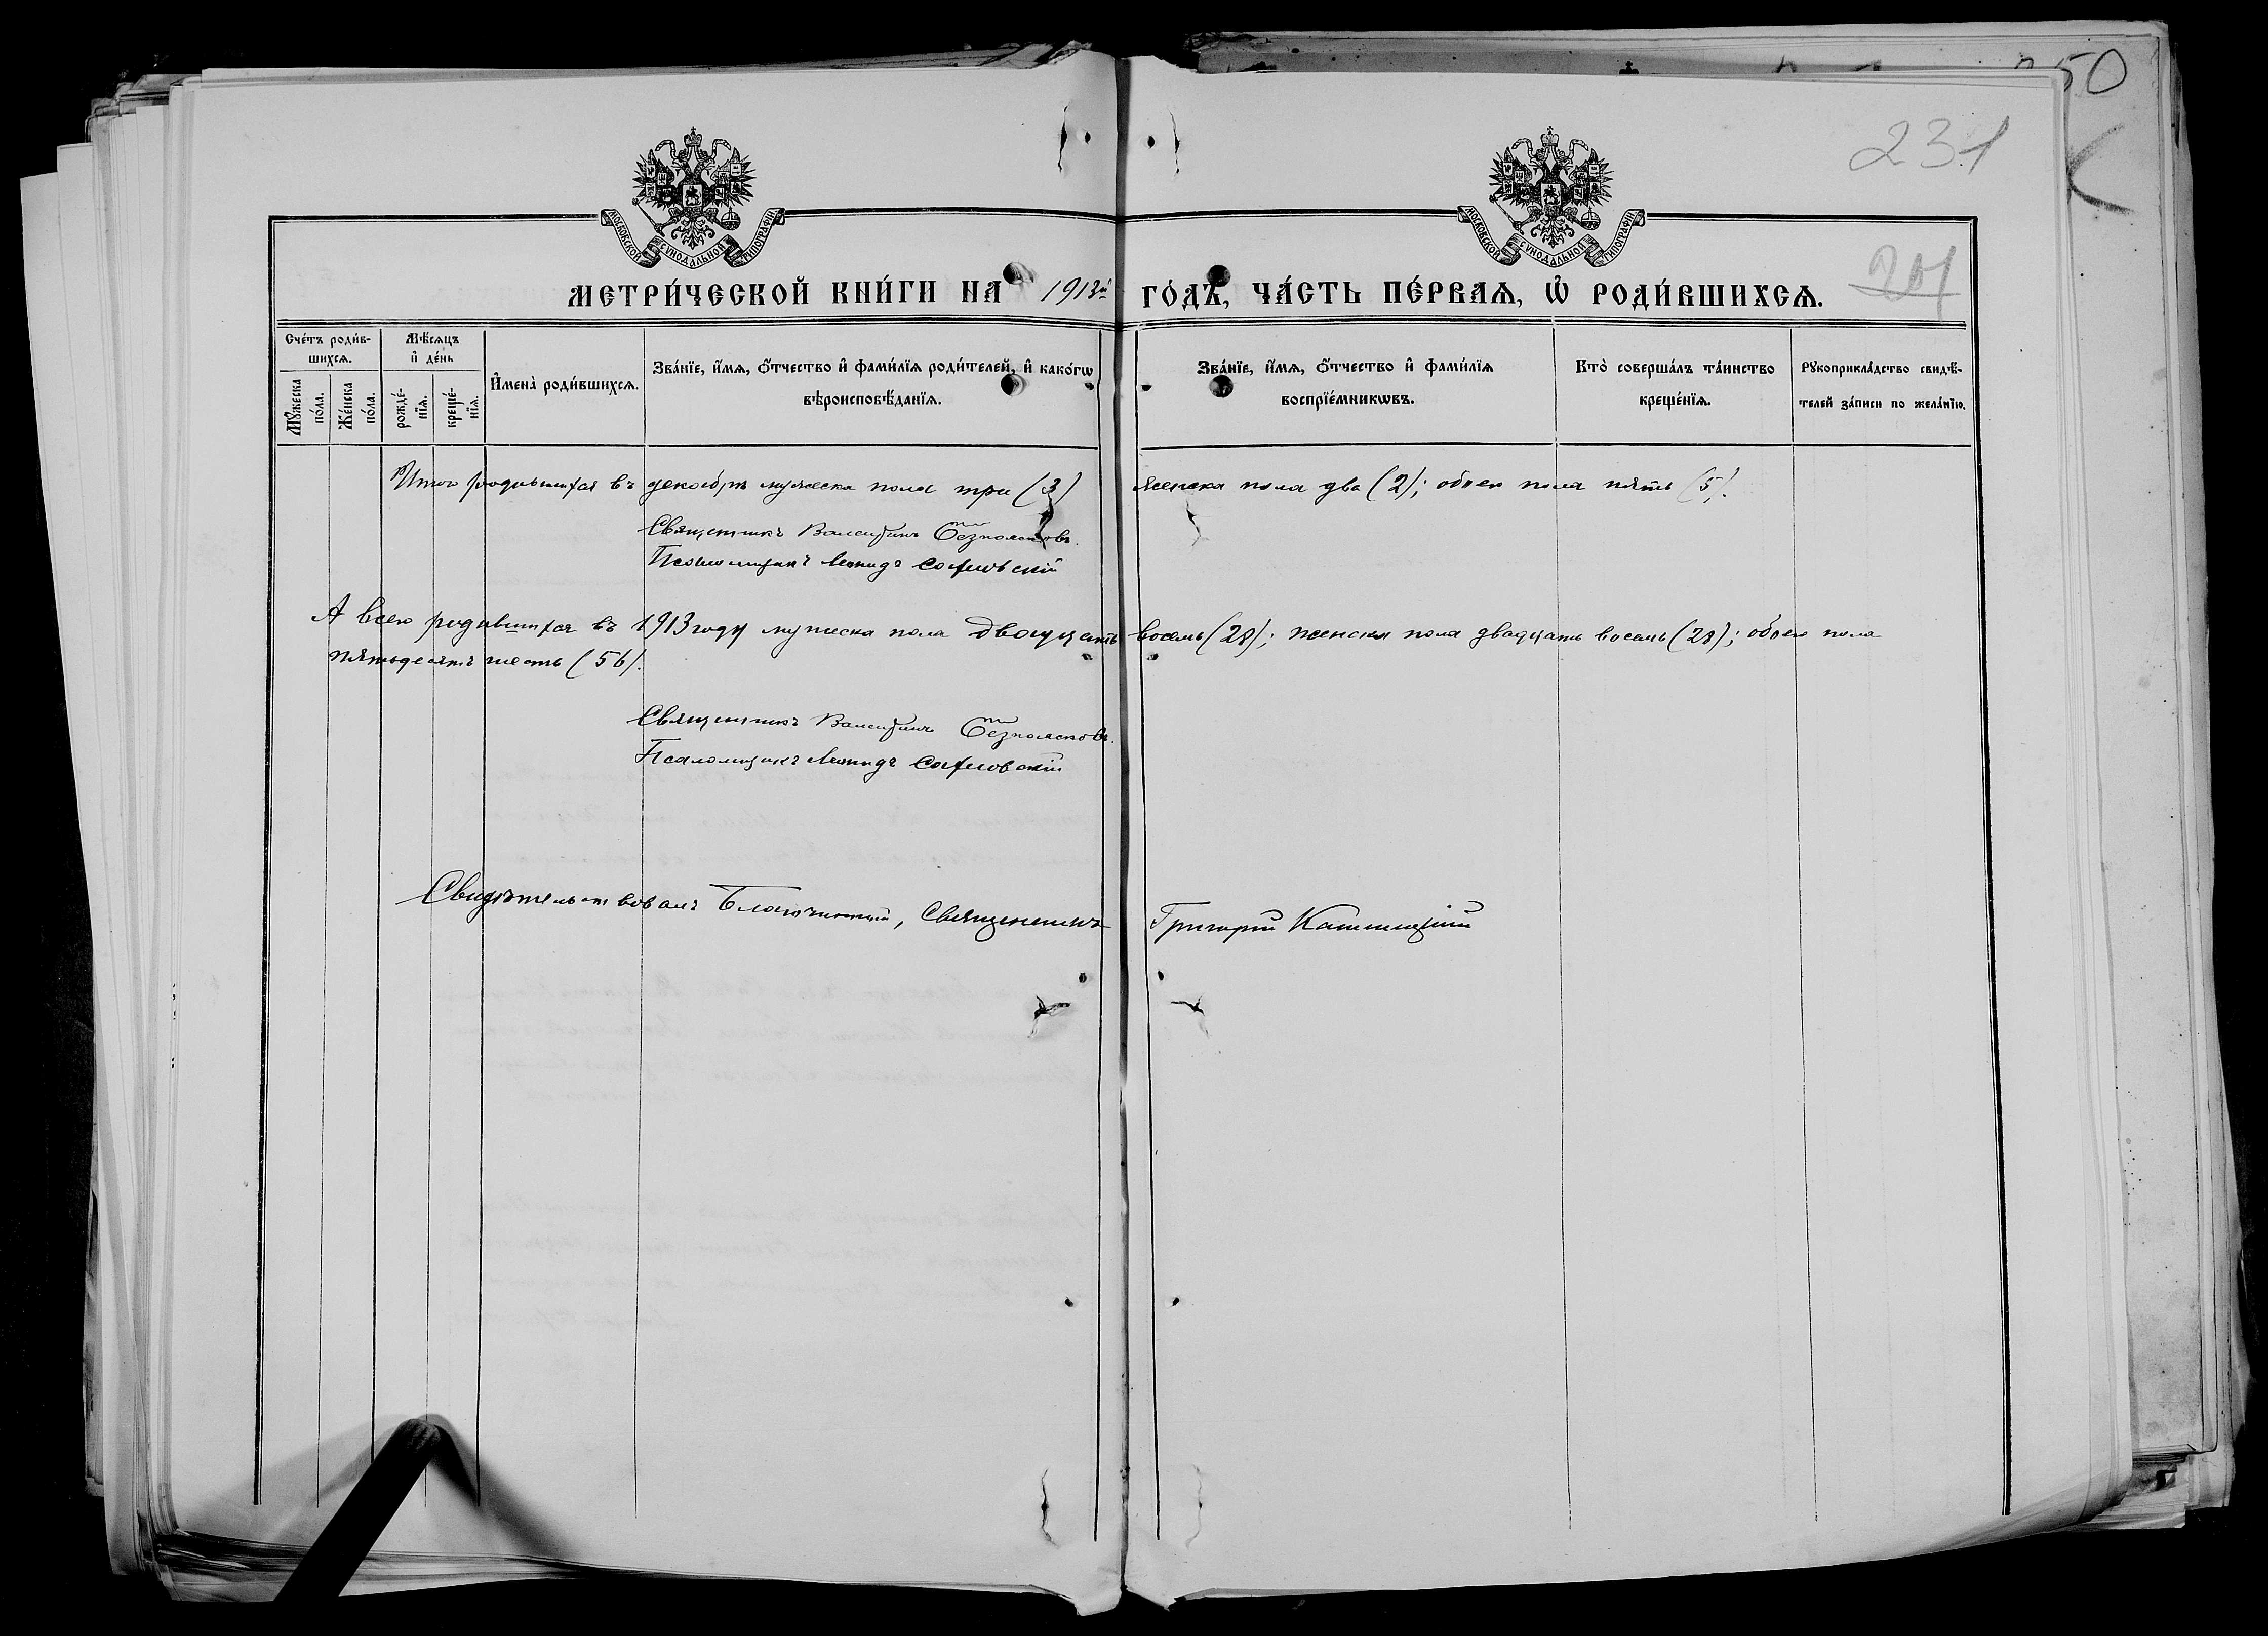 250
231
201
МОСКОВСКОЙ СѴНОДАЛЬНОЙ ТИПОГРАФІИ
МОСКОВСКОЙ СѴНОДАЛЬНОЙ ТИПОГРАФІИ
МЕТРИ́ЧЕСКОЙ КНИ́ГИ НА 1913й ГО́ДЪ, ЧА́СТЬ ПЕ́РВАѦ, Ѡ҆ РОДИ́ВШИХСѦ.
Сче́тъ роди́в-
шихсѧ.
Мꙋ́жеска по́ла.
Же́нска по́ла.
Мѣ́сѧцъ
и҆ де́нь
рожде́-нїѧ.
креще́-нїѧ.
И҆мена̀ роди́вшихсѧ.
Зва́нїе, и҆́мѧ, ѻ҆́тчество и҆ фами́лїѧ роди́телей, и҆ како́гѡ
вѣроисповѣ́данїѧ.
Зва́нїе, и҆́мѧ, ѻ҆́тчество и҆ фами́лїѧ
воспрїе́мникѡвъ.
Кто̀ соверша́лъ та́инство
креще́нїѧ.
Рꙋкоприкла́дство свидѣ́-
телей за́писи по жела́нїю.
Итого родившихся въ декабрѣ мужеска пола три (3) женска пола два (2); обоего пола пять (5).
Священникъ Валентинъ
Псаломщикъ Леонидъ
А всего родившихся въ 1913 году мужеска пола двадцать восемь (28); женска пола двадцать восемь (28); обоего пола
пятьдесятъ шесть (56).
Священникъ Валентинъ
Псаломщикъ Леонидъ
Свидѣтельствовалъ Благочинный, Священникъ Григорій